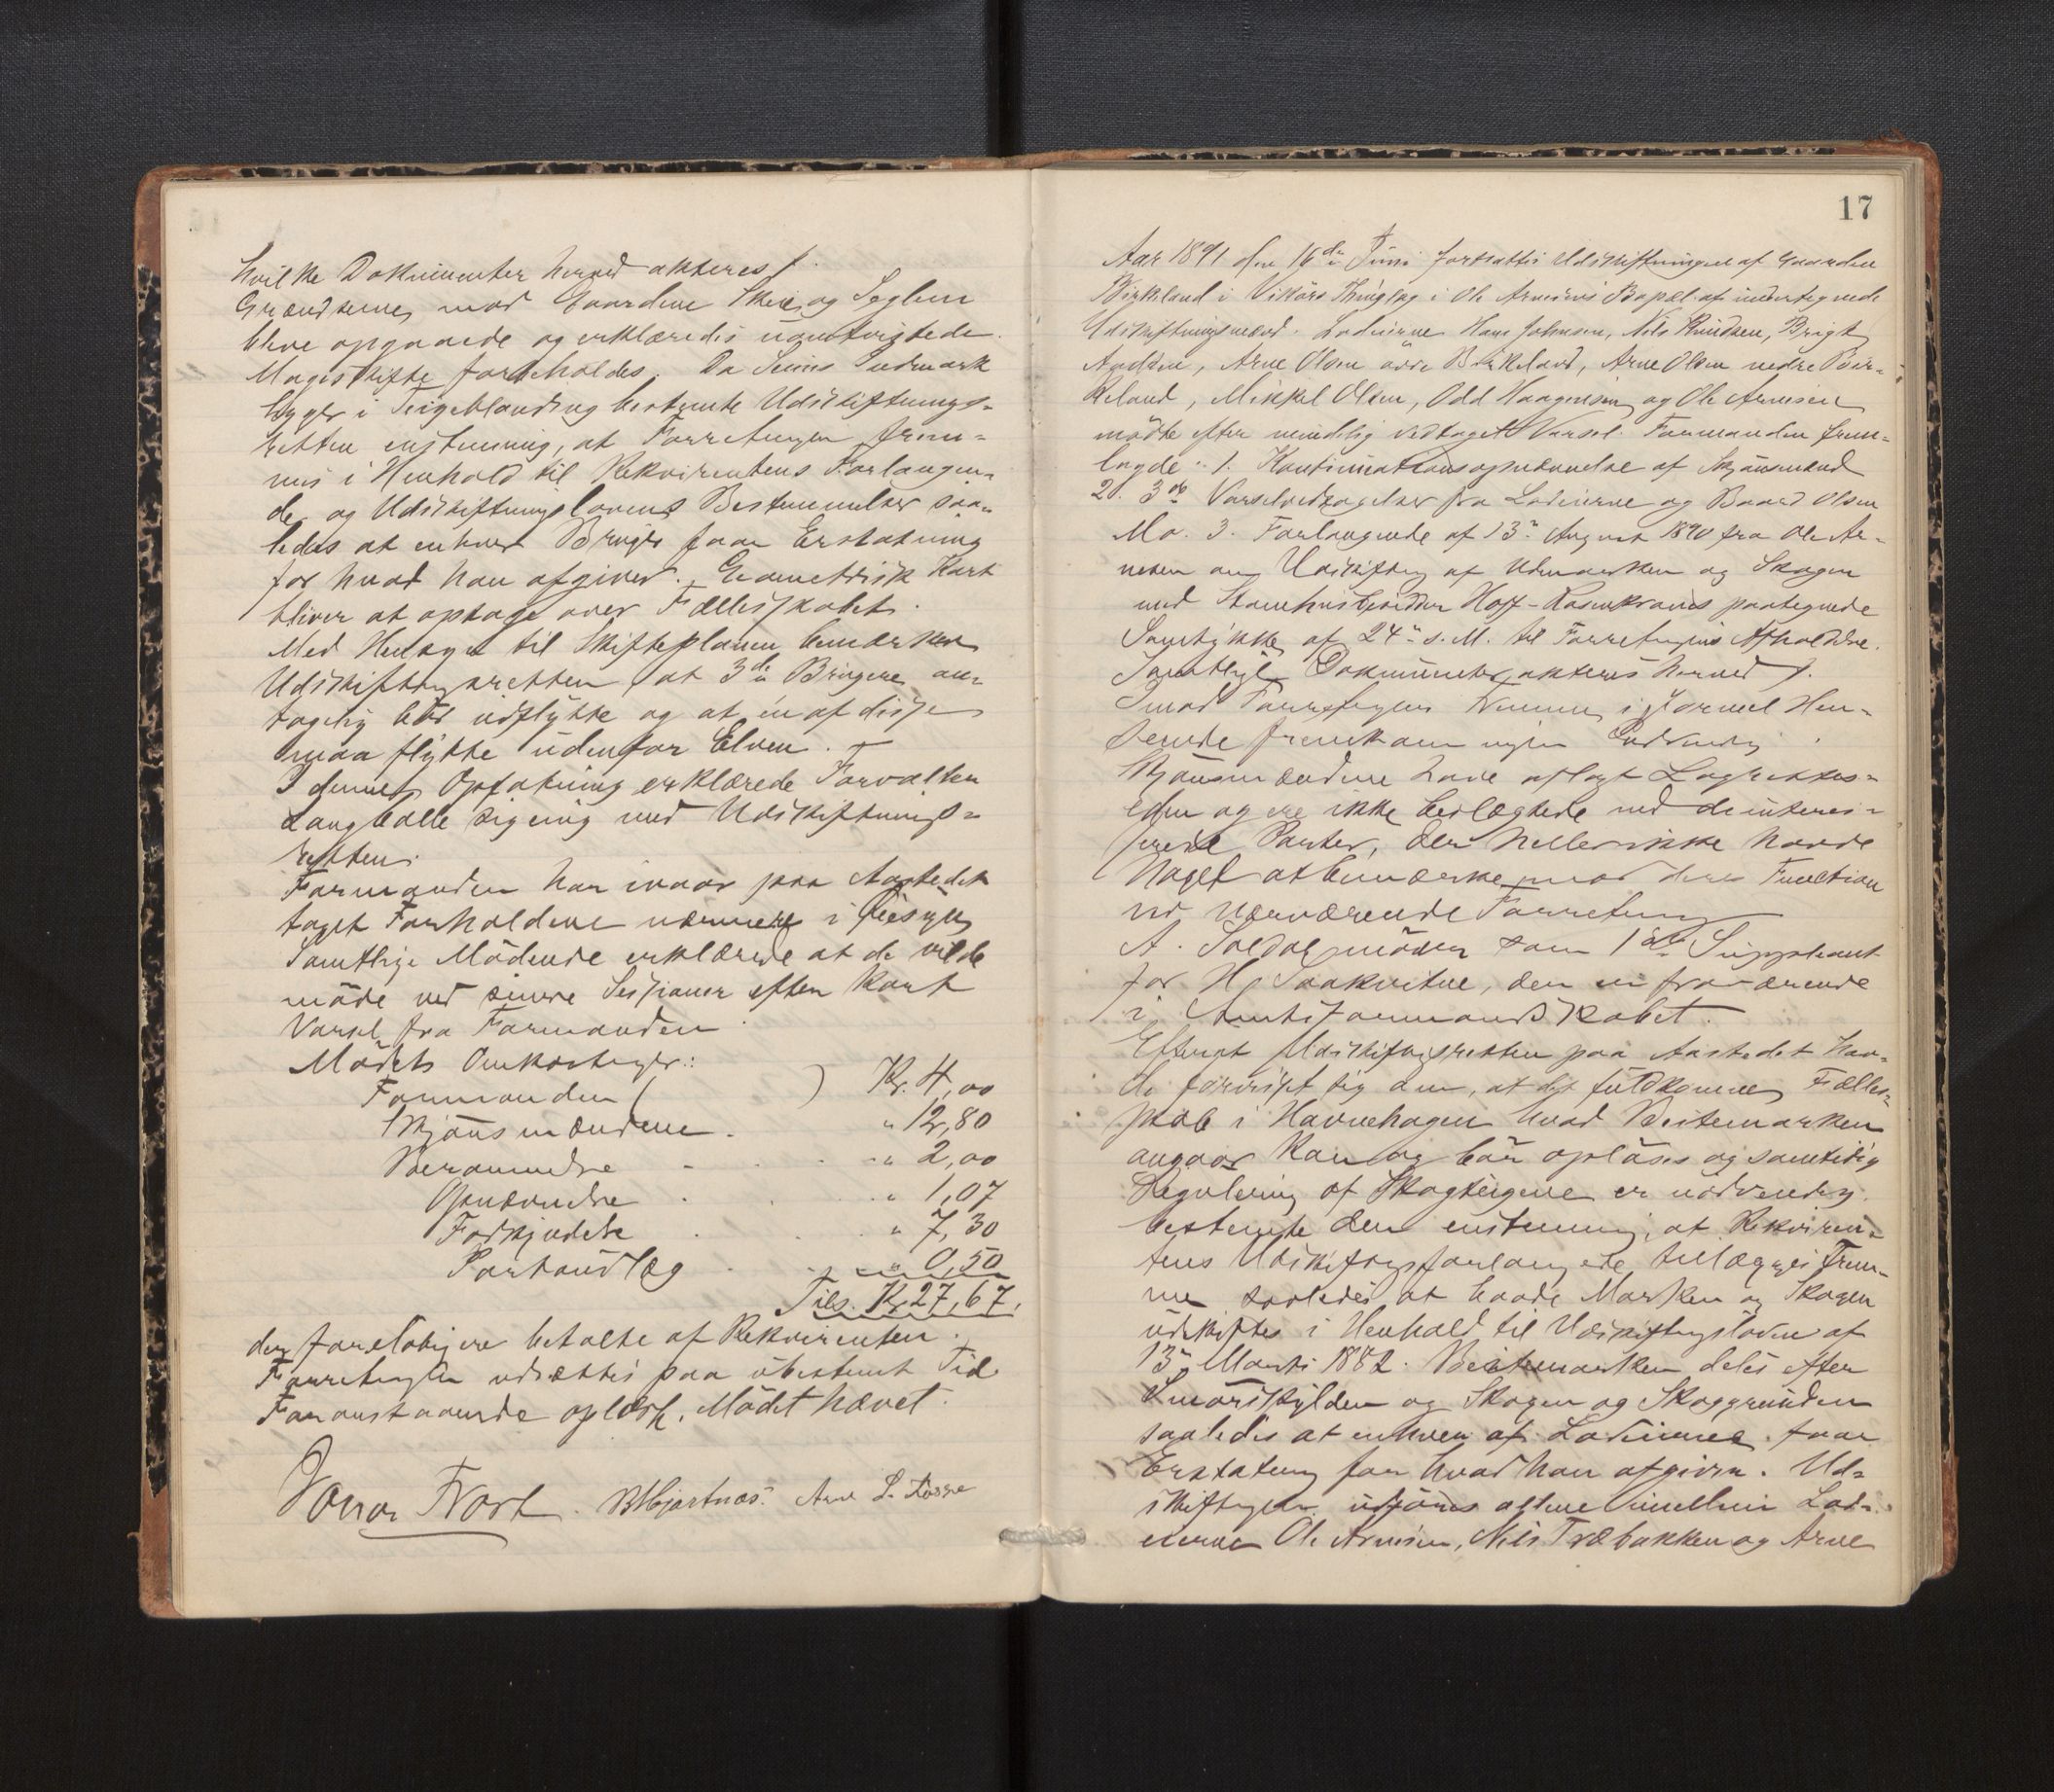 hvilke Dokumenter herved akteres /.
Grændserne mod Gaardene Skeie og Seglem
bleve opgaaede og erklæredis uomtvistede.
Mageskifte forbeholdes. Da Seims Indmark
ligger i Teigeblanding bestemte Udskiftnings-
retten enstemmig, at Forretningen frem-
mes i Henhold til Rekvirentens Forlangen-
de og Udskiftningslovens Bestemmelser saa-
ledes at enhver Bruger faar Erstatning
for hvad han afgiver. Geometrisk Kart
bliver at optage over Fællesskabet.
Med Hensyn til Skifteplanen bemærker
Udskiftningsretten, at 3de Brugere an-
tagelig bør udflytte og at én af disse
maa flytte udenfor Elven. –
I denne Opfatning erklærede Forvalter
Langballe sig enig med Udskiftnings-
retten.
Formanden har ivaar paa Aastedet
taget Forholdene nærmere i Øiesyn
Samtlige Mødende erklærede at de vilde
møde ved senere Sessioner efter kort
Varsel fra Formanden.
Mødets Omkostninger:
Formanden ( ) Kr. 4,00
Skjønsmændene . " 12,80
Berammelse . . . " 2,00
Opnævnelse . . . " 1,07
Forkyndelse . . . " 7,30
Portoudlæg . . " 0,50
Tils. Kr 27,67.
der foreløbig ere betalte af Rekvirenten.
Forretningen udsættes paa ubestemt Tid
Foranstaaende oplæst. Mødet hævet.
Frost. B Hjartnæs. Arne L.
17
Aar 1891 den 16de Juni fortsattes Udskiftningen af Gaarden
Birkeland i Vikørs Thinglag i Ole Arnesens Bopæl af undertegnede
Udskiftningsmænd. Lodeierne Hans Johnsen, Nils Knudsen, Brigt
Arne Olsen øvre Birkeland, Arne Olsen nedre Bir-
keland, Mikkel Olsen, Odd Haagensen og Ole Arnesen
mødte efter mindelig vedtaget Varsel. Formanden frem-
lagde: 1. Kontinuationsopnævnelse af Skjønsmænd
2. 3de Varselvedtagelser fra Lodeierne og Baard Olsen
Mo. 3. Forlangende af 13de August 1890 fra Ole Ar-
nesen om Udskiftning af Udmarken og Skogen
med Stamhusbesidder Hoff-Rosenkrones paategnede
Samtykke af 24de s.M. til Forretningens Afholdelse.
Samtlige Dokumenter akteres herved /.
Imod Forretningens Fremme i formel Hen-
seende fremkom ingen Indvending.
Skjønsmændene have aflagt Lagrettes-
eden og ere ikke beslægtede med de interes-
serede Parter, der heller ikke havde
Noget at bemærke mod deres Function
ved nærværende Forretning
A. møder som 1ste Suppleant
for H. Saakvitne, der er fraværende
i Amtsformandskabet.
Efterat Udskiftningsretten paa Aastedet hav-
de forvisset sig om, at det fuldkomne Fælles-
skab i Havnehagen hvad Beitemarken
angaar kan og bør opløses og samtidig
Regulering af Skogteigene er nødvendig
bestemte den enstemmig, at Rekviren-
tens Udskiftningsforlangende tillægges Frem-
me saaledes at baade Marken og Skogen
udskiftes i Henhold til Udskiftningsloven af
13de Marts 1882. Beitemarken deles efter
Smørskylden og Skogen og Skoggrunden
saaledes at enhver af Lodeierne faar
Erstatning for hvad han afgiver. Ud-
skiftningen udføres alene imellem Lod-
eierne Ole Arnesen, Nils Træbakken og Arne